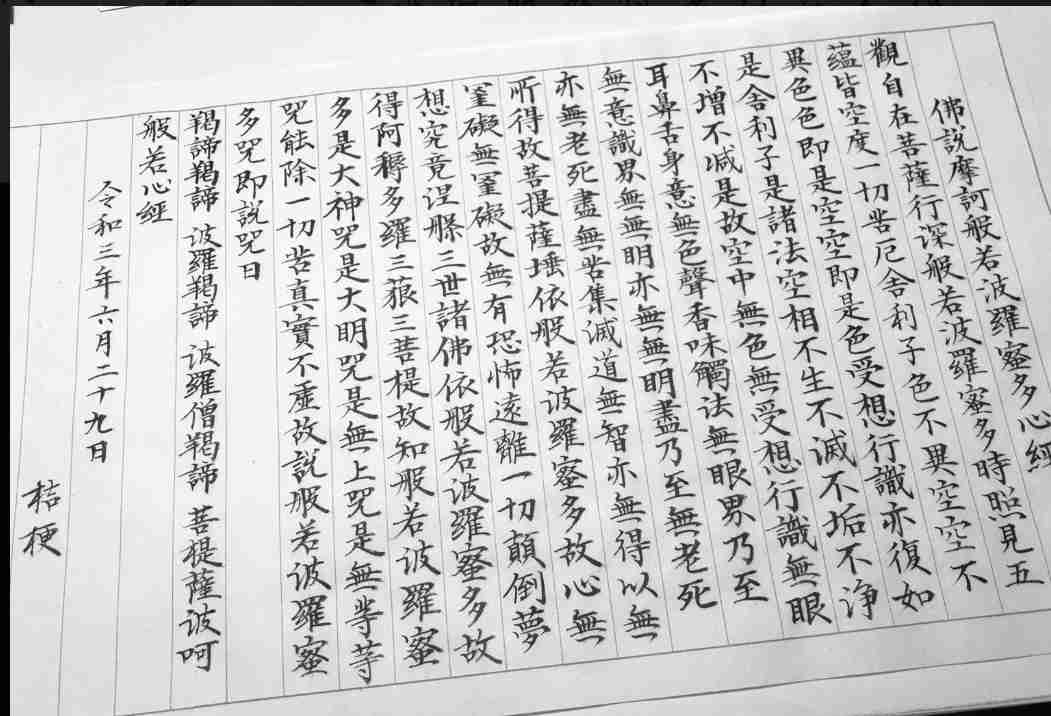 佛說摩訶般若波羅蜜多心經
觀自在菩薩行深般若波羅蜜多時照見五
蘊皆空度一切苦厄舍利子色不異空空不
異色色即是空空即是色受想行識亦復如
是舍利子是諸法空相不生不滅不垢不淨
不增不減是故空中無色無受想行識無眼
耳鼻舌身意無色聲香味觸法無眼界乃至
無意識界無無明亦無無明盡乃至無老死
亦無老死盡無苦集滅道無智亦無得以無
所得故菩提薩埵依般若波羅蜜多故心無
罣礙無罣礙故無有恐怖遠離一切顛倒夢
想究竟涅槃三世諸佛依般若波羅蜜多故
得阿耨多羅三藐三菩提故知般若波羅蜜
多是大神咒是大明咒是無上咒是無等等
咒能除一切苦真實不虛故說般若波羅蜜
多咒即說咒曰
羯諦羯諦 波羅羯諦 波羅僧羯諦 菩提薩波呵
般若心經
令和三年六月二十九日
桔梗